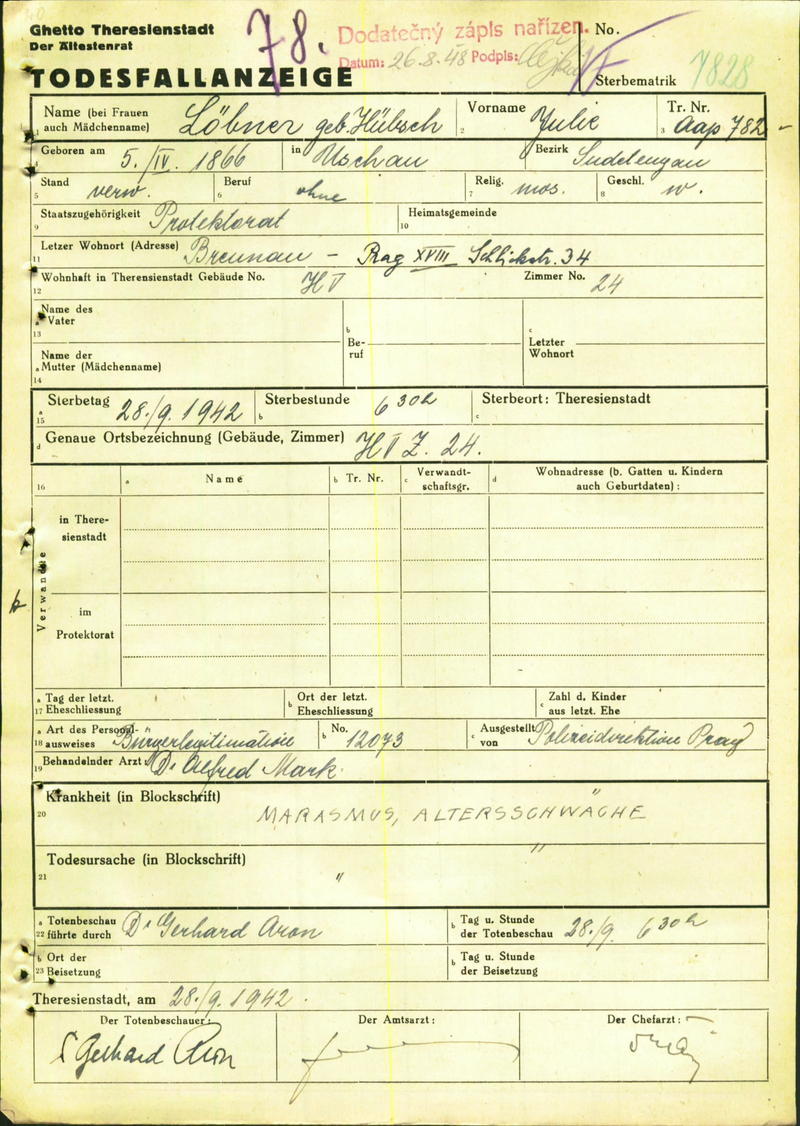 Ghetto Theresienstadt
Der Ältestenrat
TODESFALLANZEIGE
78.
Dodatečný zápis nařízen.
Datum: 26.8.48 Podpis:
No.
Sterbematrik 7828
Name (bei Frauen auch Mädchenname) Löbner geb. Hübsch
1
Vorname Julie
2
Tr. Nr. Aap 782
3
Geboren am 5./IV. 1866 in Uschau Bezirk Sudetengau
4
Stand verw. Beruf ohne Relig. mos. Geschl. w.
5 6 7 8
Staatszugehörigkeit Protektorat Heimatsgemeinde
9 10
Letzer Wohnort (Adresse) Breunau - Prag XVIII Schlickstr. 34
11
Wohnhaft in Therensienstadt Gebäude No. H V Zimmer No. 24
12
a Name des Vater
13
b Beruf
c Letzter Wohnort
a Name der Mutter (Mädchenname)
14
a Sterbetag 28./9. 1942 b Sterbestunde 6 30 h c Sterbeort: Theresienstadt
15
d Genaue Ortsbezeichnung (Gebäude, Zimmer) H V Z. 24.
16 a Name b Tr. Nr. c Verwandtschaftsgr. d Wohnadresse (b. Gatten u. Kindern auch Geburtdaten) :
Verwandte
in Theresienstadt
im Protektorat
a Tag der letzt. Eheschliessung
17
b Ort der letzt. Eheschliessung
c Zahl d. Kinder aus letzt. Ehe
a Art des Personalausweises Bürgerlegitimation b No. 12073 c Ausgestellt von Polizeidirektion Prag
18
Behandelnder Arzt Dr Alfred Mark.
19
Krankheit (in Blockschrift)
20
MARASMUS, ALTERSSCHWÄCHE
Todesursache (in Blockschrift)
21
" "
a Totenbeschau führte durch Dr Gerhard Aron
22
b Tag u. Stunde der Totenbeschau 28./9. 6 30 h
b Ort der Beisetzung
23
b Tag u. Stunde der Beisetzung
Theresienstadt, am 28./9. 1942.
Der Totenbeschauer: Der Amtsarzt: Der Chefarzt:
Gerhard Aron